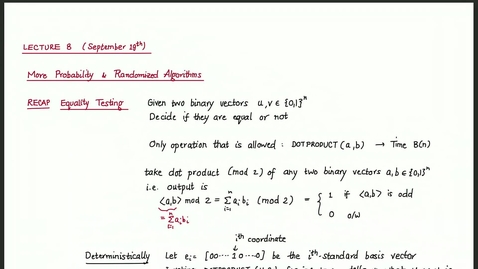 LECTURE 8 (September 19th)
More Probability & Randomized Algorithms
RECAP Equality Testing Given two binary vectors u,v ∈ {0,1}^n
Decide if they are equal or not
Only operation that is allowed : DOTPRODUCT(a,b) → Time B(n)
take dot product (mod 2) of any two binary vectors a,b ∈ {0,1}^n
i.e. output is
<a,b> mod 2 = Σ_{i=1}^n a_i b_i (mod 2) = { 1 if <a,b> is odd
0 o/w
= Σ_{i=1}^n a_i b_i
ith coordinate
↓
Deterministically Let e_i = [00···· 1 0···0] be the ith-standard basis vector